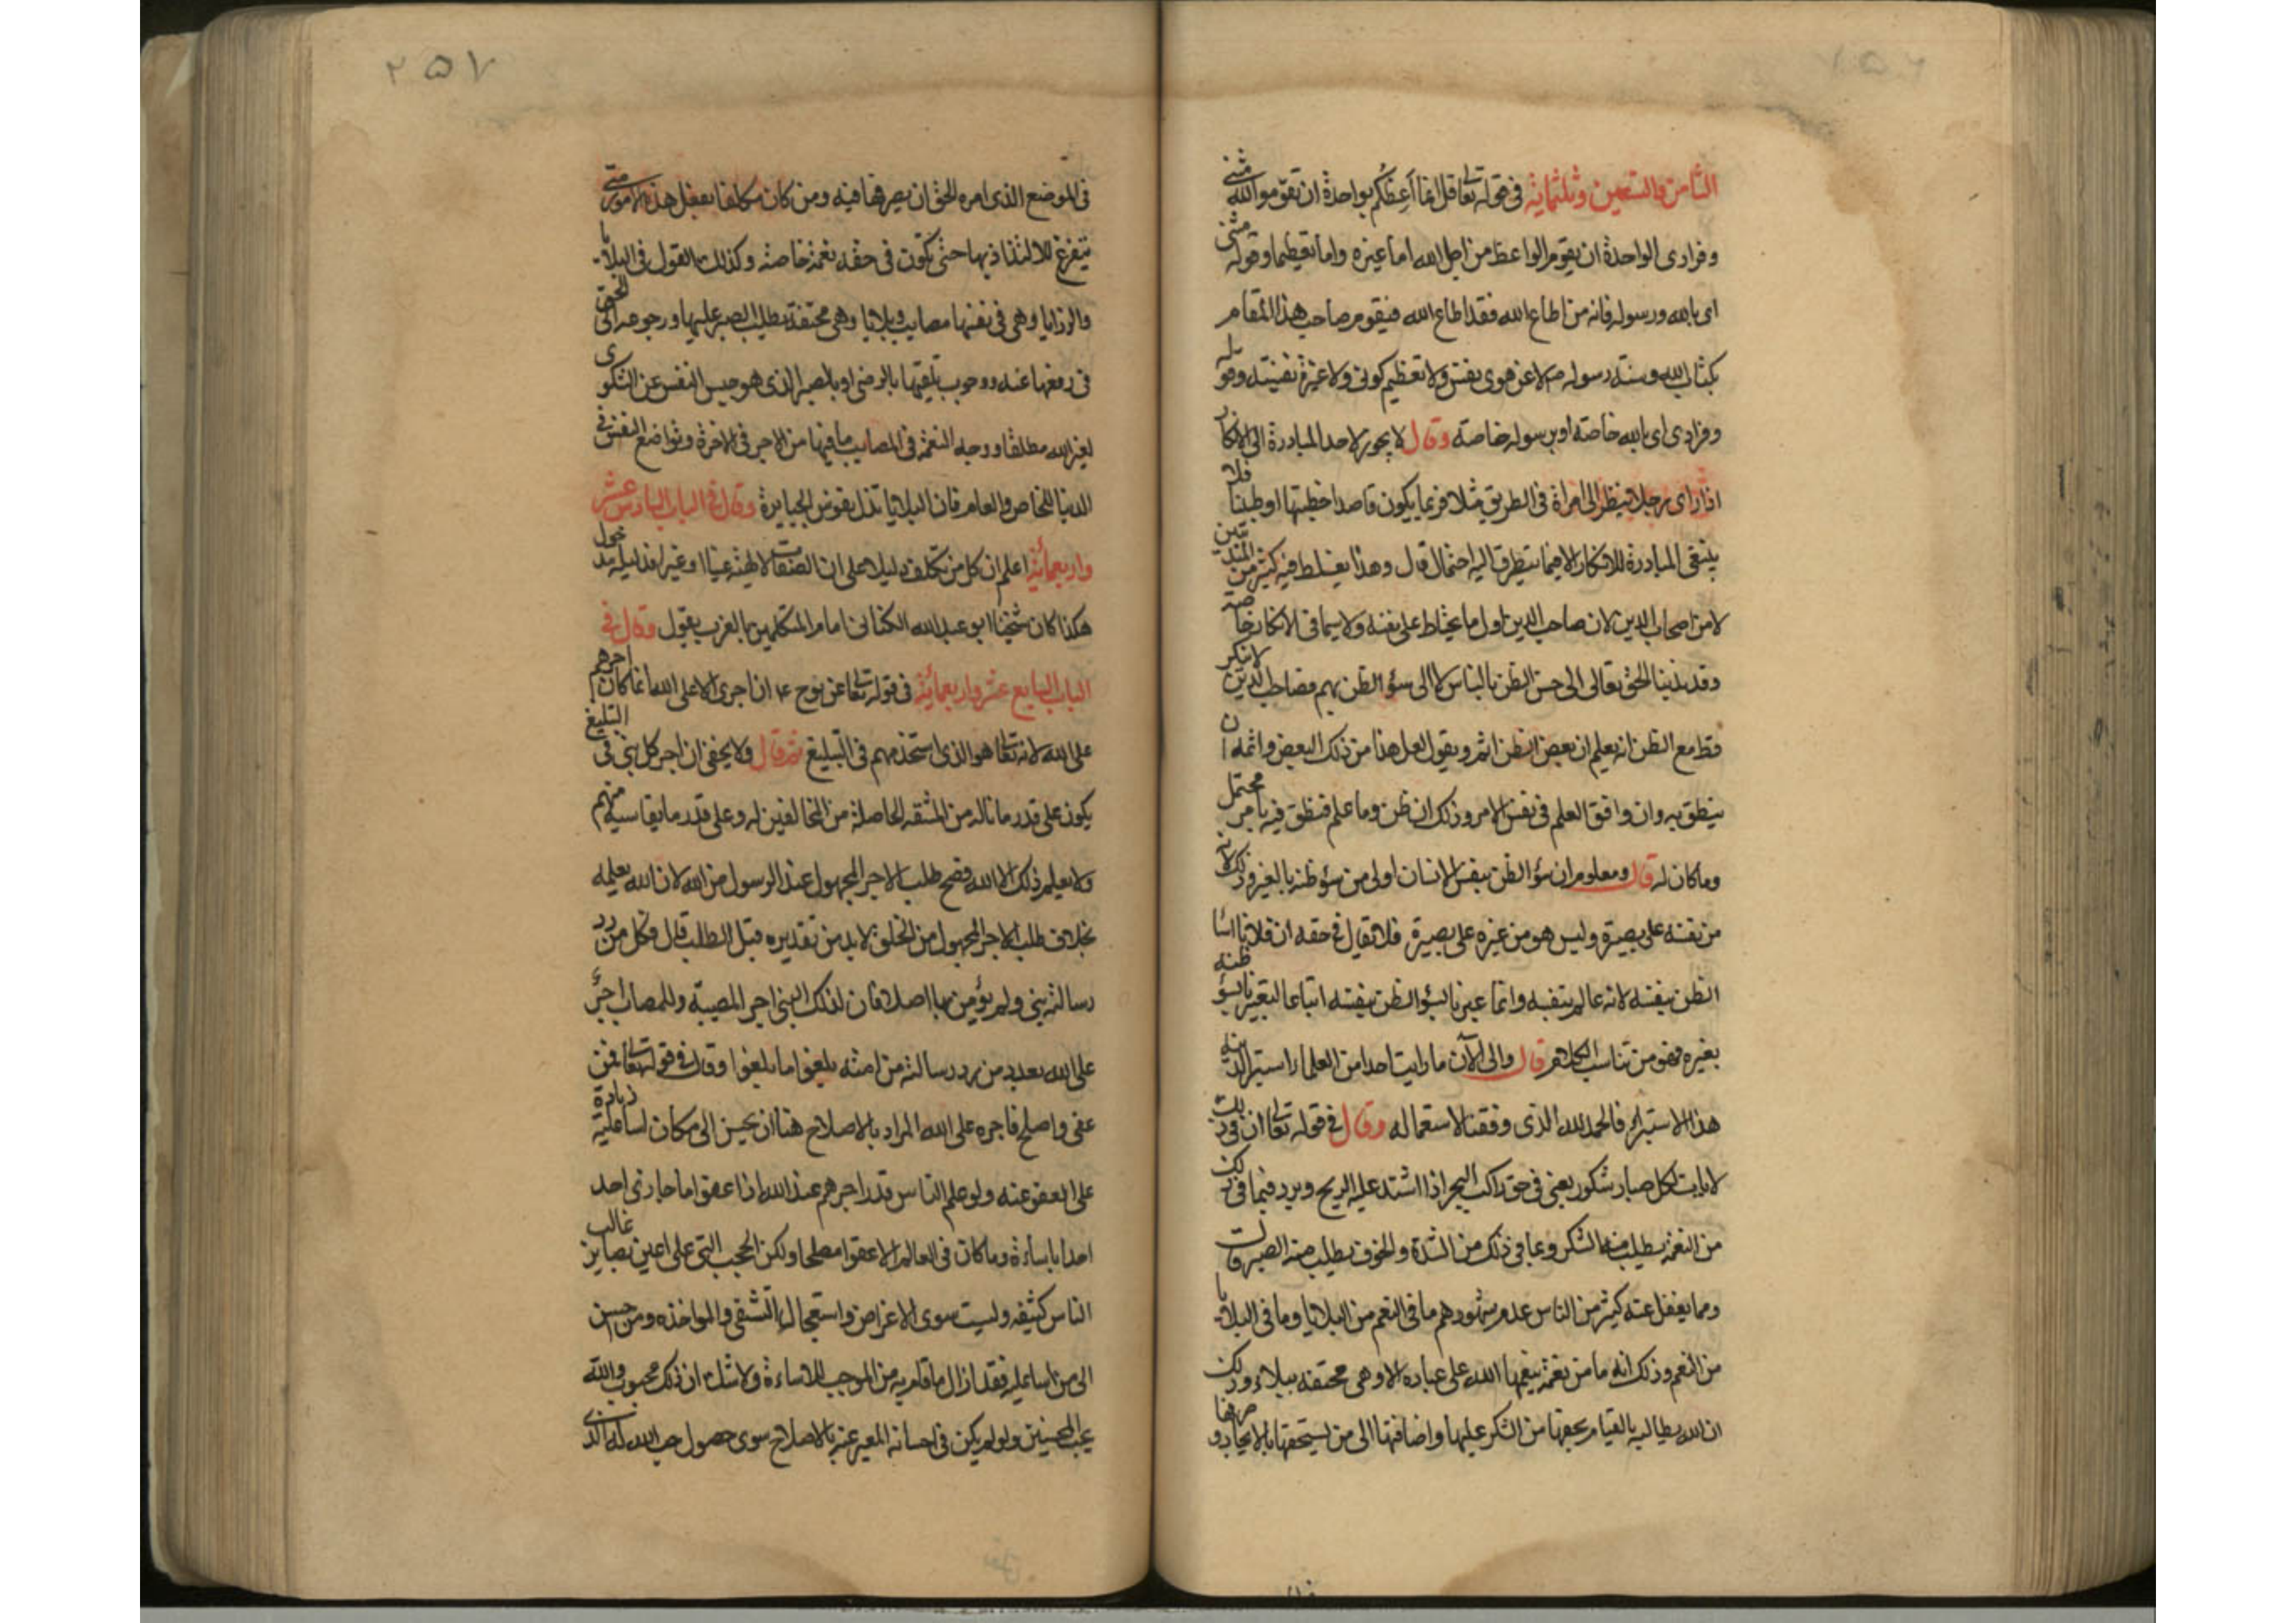 الثامن والستعين وثلثمائة في قوله تعالى قل انما أعظكم بواحدة ان تقوموا لله مثنى
وفرادى الواحدة ان يقوم الواعظ من اجل الله اما غيره واما تعظيما وقوله مثنى
اى بالله ورسوله فانه من اطاع الله فقد اطاع الله فيقوم صاحب هذا المقام
بكتاب الله وسنة رسوله لا عن هوى نفس ولا تعظيم كونى ولا غيرة نفسية وقوله
وفرادى اى بالله خاصة او برسوله خاصة وقال لا يجوز لاحد المبادرة الى الانكار
اذا راى رجلا ينظر الى امراة في الطريق مثلا فربما يكون قاصدا خطبتها او طبيبا فلا
ينبغى المبادرة للانكار الا فيما لا يتطرق اليه احتمال قال وهذا يغلط فيه كثير من المتدينين
لا من اصحاب الدين لان صاحب الدين اول ما يحتاط على نفسه ولا سيما في الانكار خاصة
وقد ندبنا الحق تعالى الى حسن الظن بالناس لا الى سؤ الظن بهم فصاحب الدين لا ينكر
قط مع الظن انه يعلم ان بعض الظن اثم ويقول لعل هذا من ذلك البعض واثمه ان
ينطق به وان وافق العلم في نفس الامر وذلك انه ظن وما علم فنطق فيه بامر محتمل
وما كان له قال ومعلوم ان سؤ الظن بنفس الانسان اولى من سؤ ظنه بالغير وذلك لانه
من نفسه على بصيرة وليس هو من غيره على بصيرة فلا يقال في حقه ان فلانا اسا
الظن بنفسه لانه عالم بنفسه وانما عبرنا بسؤ الظن بنفسه اتباعا لتعبيرنا بسؤ ظنه
بغيره فهو من تناسب الكلام قال والى الآن ما رايت احدا من العلما استبرا لدينه
هذا الاستبراء فالحمد لله الذى وفقنا لاستعماله وقال في قوله تعالى ان في ذلك
لايات لكل صبار شكور يعنى في حق راكب البحر اذا اشتد عليه الريح وبرد فبما في ذلك
من النعمة يطلب منه الشكر وبما في ذلك من الشدة والخوف يطلب منه الصبر قال
ومما يغفل عنه كثير من الناس عدم شهودهم ما في النعم من البلايا وما في البلايا
من النعم وذلك انه ما من نعمة ينعمها الله على عباده الا وهى محتفة ببلاء وذلك
ان الله يطالبه بالقيام بحقها من الشكر عليها واضافتها الى من يستحقها بالايجاد وصرفها
٢٥٧
في الموضع الذى امره الحق ان يصرفها فيه ومن كان مكلفا بفعل هذه الامور متى
يتفرغ للالتذاذ بها حتى تكون في حقه نعمة خاصة وكذلك القول في البلايا
والرزايا وهى في نفسها مصايب وبلايا وهى محتفة بطلب الصبر عليها ورجوعه الى الحق
في رفعها عنه ووجوب تلقيها بالرضى او بالصبر الذى هو حبس النفس عن الشكوى
لغير الله مطلقا ووجه النعمة في المصايب ما فيها من الاجر في الاخرة وتواضع النفس في
الدنيا للخاص والعام فان البلايا تذل نفوس الجبابرة وقال في الباب السادس عشر
واربعمائة اعلم ان كل من تكلف دليلا على ان الصفات الالهية عينا او غيرا فدليله مدخول
هكذا كان شيخنا ابو عبد الله الكنانى امام المتكلمين بالغرب يقول وقال في
الباب السابع عشر واربعمائة في قوله تعالى عن نوح ان اجرى الا على الله انما كان اجرهم
على الله لانه تعالى هو الذى استخدمهم في التبليغ ثم قال ولا يخفى ان اجر كل نبى في التبليغ
يكون على قدر ما ناله من المشقة الحاصلة من المخالفين له وعلى قدر ما يقاسيه منهم
ولا يعلم ذلك الا الله فصح طلب الاجر المجهول عند الرسول من الله لان الله يعلمه
بخلاف طلب الاجر المجهول من الخلق لا بد من تقديره قبل الطلب قال وكل من رد
رسالة نبى ولم يؤمن بها اصلا فان لذلك النبى اجر المصيبة وللمصاب اجر
على الله بعدد من رد رسالته من امته بلغوا ما بلغوا وقال في قوله تعالى فمن
عفى واصلح فاجره على الله المراد بالاصلاح هنا ان يحسن الى من كان اسا عليه زيادة
على العفو عنه ولو علم الناس قدر اجرهم عند الله اذا عفوا ما جازى احد
احدا باساءة وما كان في العالم الا عفوا مصلحا ولكن الحجب التى على اعين بصاير غالب
الناس كثيفه وليست سوى الاغراض واستعجال التشفى والمواخذه ومن احسن
الى من اسا عليه فقد ازال ما قام به من الموجب للاساءة ولا شك ان ذلك محبوب والله
يحب المحسنين ولو لم يكن في احسانه المعبر عنه بالاصلاح سوى حصول حب الله له الذى